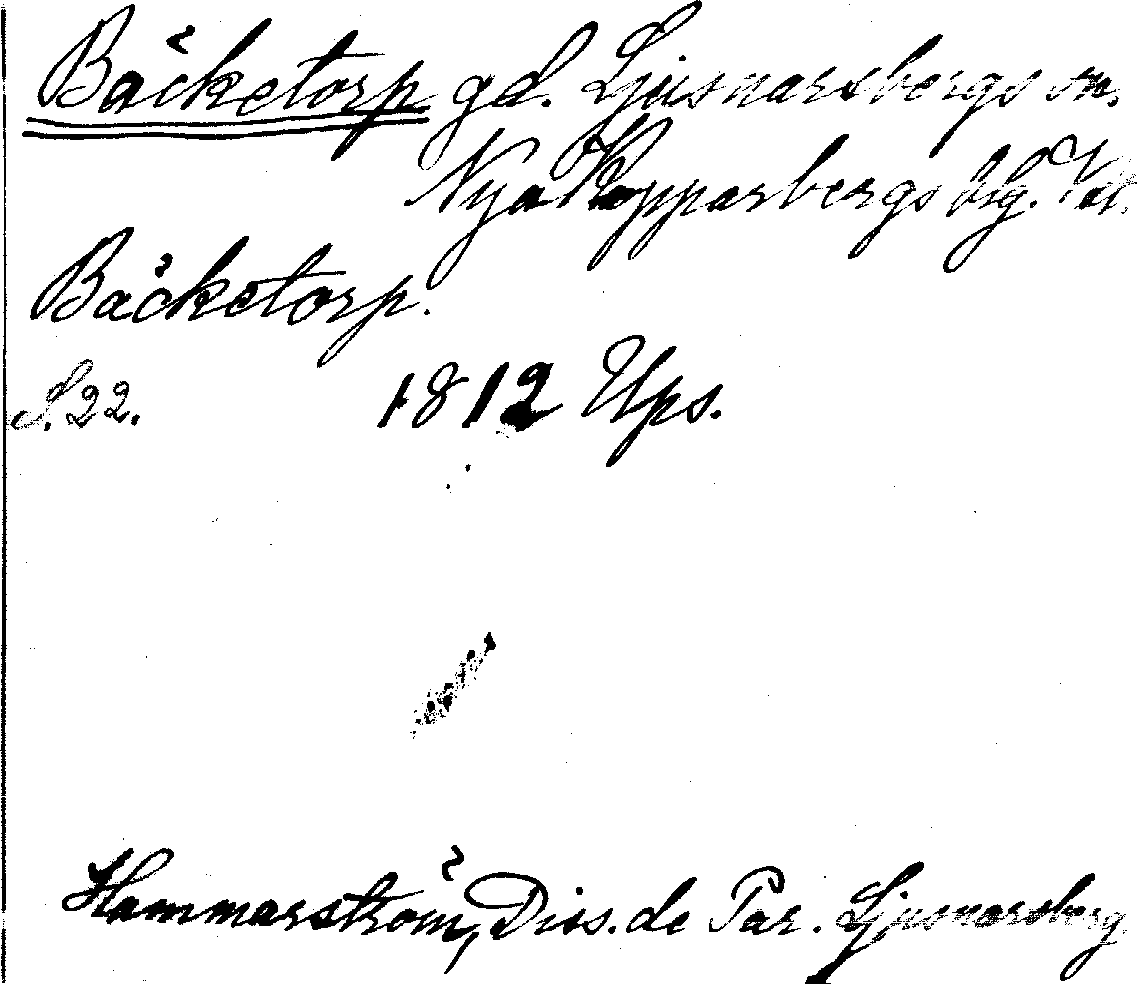 Bäcketorp gd. Ljusnarsbergs sn.
Nya Kopparbergs blg. Vstm.
Bäcketorp.
S. 22. 1812 Ups.
Hammarström, Diss. de Par. Ljusnarsberg